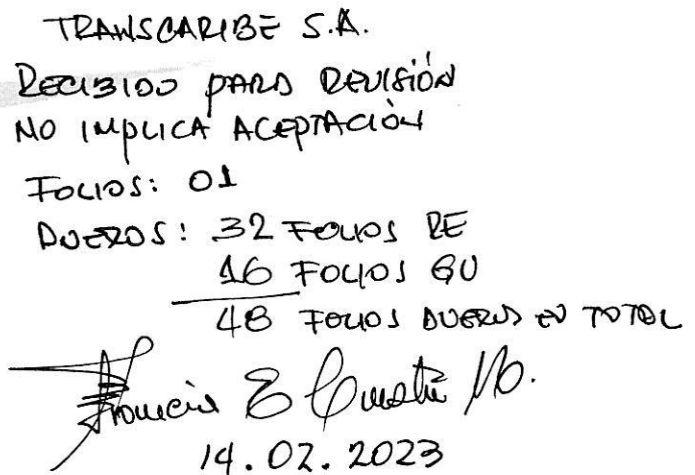 TRANSCARIBE S.A.
RECIBIDO PARA REVISIÓN
NO IMPLICA ACEPTACIÓN
FOLIOS: 01
ANEXOS: 32 FOLIOS RE
16 FOLIOS GU
48 FOLIOS ANEXOS EN TOTAL
14.02.2023